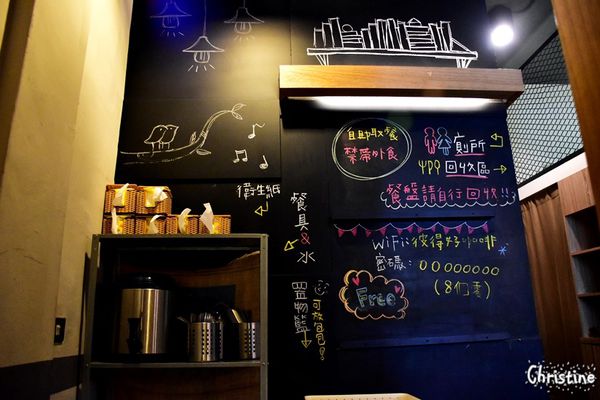 自助取餐
禁帶外食
廁所
回收區
餐盤請自行回收!!
衛生紙
餐具&水
WiFi:彼得好咖啡
密碼: 00000000
(8个零)
Free
置物籃
可放包包
Christine